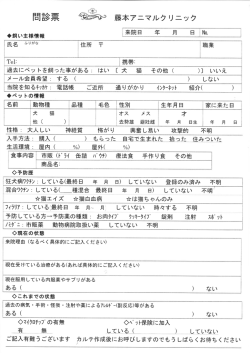 問診票 藤本アニマルクリニック
来院日 年 月 日 No.
◆飼い主様情報
氏名 ふりがな 住所 〒 職業
Tel: 携帯:
過去にペットを飼った事がある: はい ( 犬 猫 その他( )) いいえ
メール会員希望 する ( ) しない
当院を知るキッカケ: 電話帳 ご近所 通りがかり インターネット 紹介( )
◆ペットの情報
名前 動物種 品種 毛色 性別 生年月日 家に来た日
犬 猫 オス メス 才
その他( ) 去勢雄 避妊雌 年 月 日 年 月 日
性格: 大人しい 神経質 怖がり 興奮し易い 攻撃的 不明
入手方法: 購入 ( ) もらった 自宅で生まれた 拾った 注文した
生活環境: 屋内( %) 屋外( %)
食事内容: 市販(ドライ 缶詰 パウチ) 療法食 手作り食 その他
( )
◆予防歴
狂犬病ワクチン: している(最終日 年 月 日) していない 登録のみ済み 不明
混合ワクチン: している( 種混合 最終 年 月 日) していない 不明
☆猫エイズ ☆猫白血病 ☆は猫ちゃんのみ
フィラリア: している(最終 年 月 日) していない 不明
予防している方→予防薬の種類: お肉タイプ クッキータイプ 錠剤 注射 スポット
ノミ・ダニ: 市販薬 動物病院取扱い薬 していない 不明
◇現在の状態
来院理由 (なるべく具体的にご記入ください)
現在受けている治療がある(あれば具体的にご記入ください)
現在服用している内服薬やサプリがある
ある( ) ない
◇これまでの状態
過去の病気・手術・怪我・注射や薬によるアレルギー(副反応)等がある
ある( ) ない
◇マイクロチップの有無 ◇ペット保険に加入
有 ・ 無 している( ) していない
ご記入有難うございます カルテ作成後にお呼びしますのでもうしばらくお待ちください